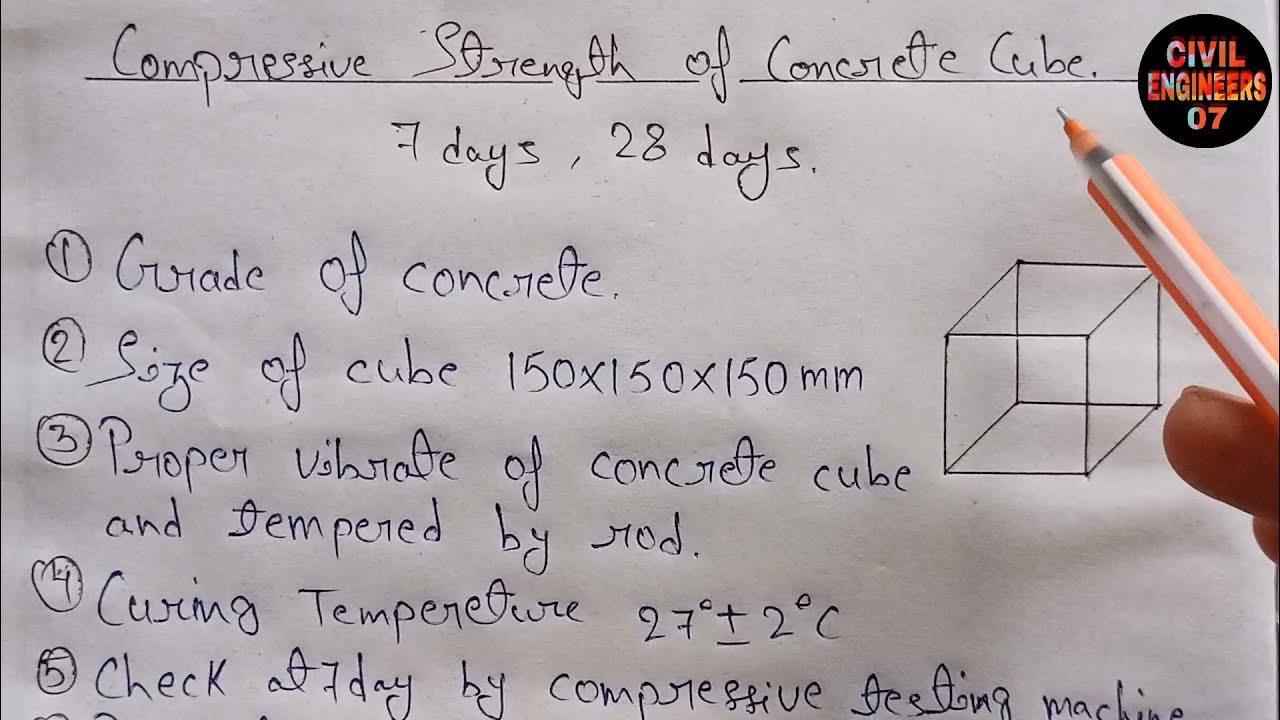 Compressive Strength of Concrete Cube.
CIVIL
ENGINEERS
07
7 days, 28 days.
① Grade of concrete.
② Size of cube 150x150x150mm
③ Proper vibrate of concrete cube
and tempered by rod.
④ Curing Tempereture 27°±2°C
⑤ Check at 7day by compressive testing machine